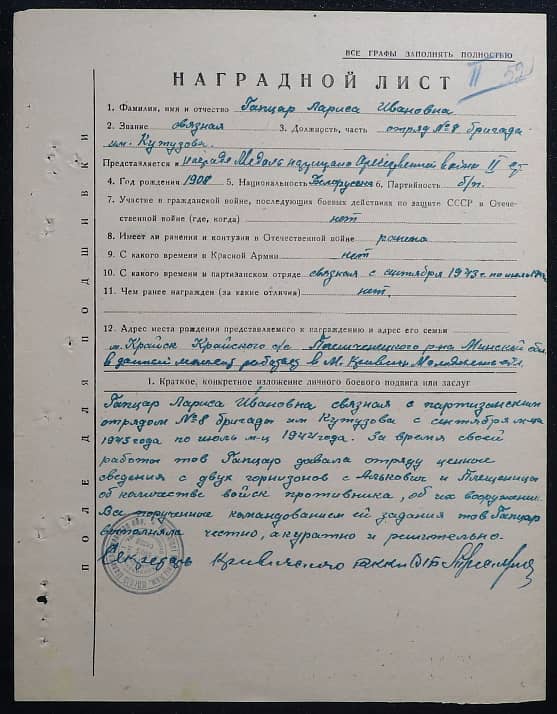 ВСЕ ГРАФЫ ЗАПОЛНЯТЬ ПОЛНОСТЬЮ
II 52
НАГРАДНОЙ ЛИСТ
1. Фамилия, имя и отчество Гапцар Лариса Ивановна
2. Звание связная 3. Должность, часть отряд №8 бригада
им. Кутузова.
Представляется к Медаль Отечественной войны II ст
4. Год рождения 1908 5. Национальность Белоруска 6. Партийность б/п.
7. Участие в гражданской войне, последующих боевых действиях по защите СССР и Отече-
ственной войне (где, когда) нет
8. Имеет ли ранения и контузии в Отечественной войне ранена
9. С какого времени в Красной Армии нет
10. С какого времени в партизанском отряде связная с сентября 1943 г. по июль
11. Чем ранее награжден (за какие отличия) нет.
12. Адрес места рождения представляемого к награждению и адрес его семьи
м. Крайск Крайского с/с Плещеницкого р-на Минской обл
в данный момент работает в м. Кривичи
1. Краткое, конкретное изложение личного боевого подвига или заслуг
Гапцар Лариса Ивановна связная с партизанским
отрядом №8 бригады им Кутузова с сентября м-ца
1943 года по июль м-ц 1944 года. За время своей
работы тов Гапцар давала отряду ценные
сведения с двух горнизонов с и Плещеницы
об количестве войск противника, об их вооружении.
Все порученные командованием ей задания тов Гапцар
выполняла честно, акуратно и решительно.
Секретарь
ПОЛЕ ДЛЯ ПОДШИВКИ